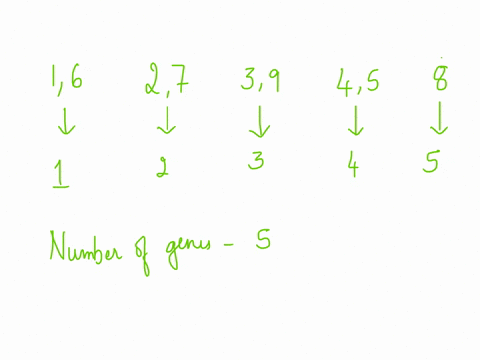 1,6 2,7 3,9 4,5 8
↓ ↓ ↓ ↓ ↓
1 2 3 4 5
Number of genus - 5